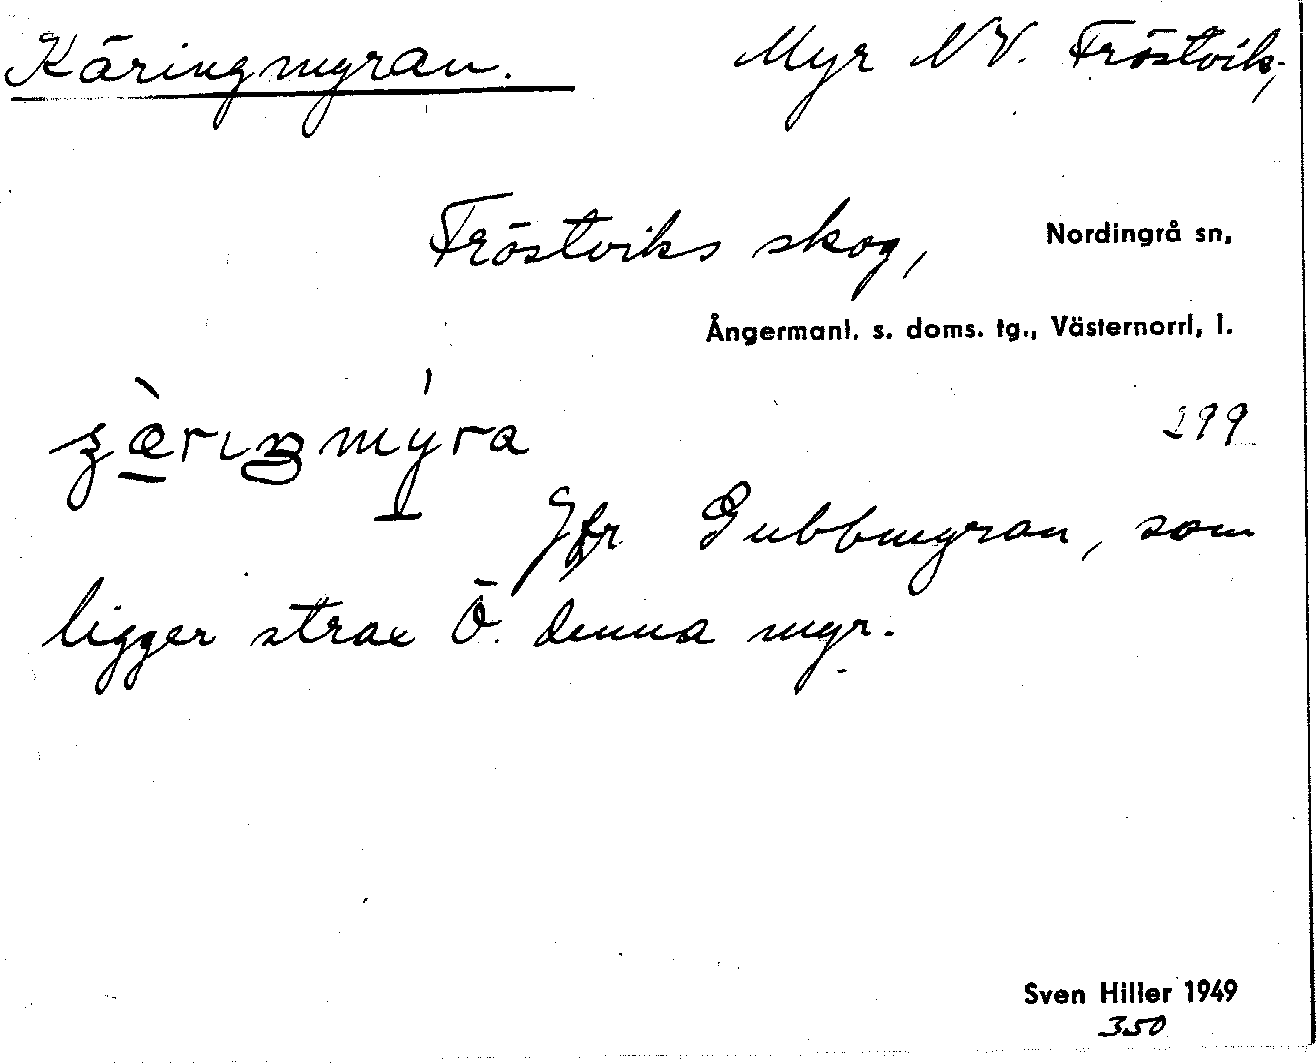 Käringmyran. Myr NV. Fröstvik,
Fröstviks skog, Nordingrå sn,
Ångermanl. s. doms. tg., Västernorrl, l.
299
Jfr Gubbmyran, som
ligger strax Ö. denna myr.
Sven Hiller 1949
350